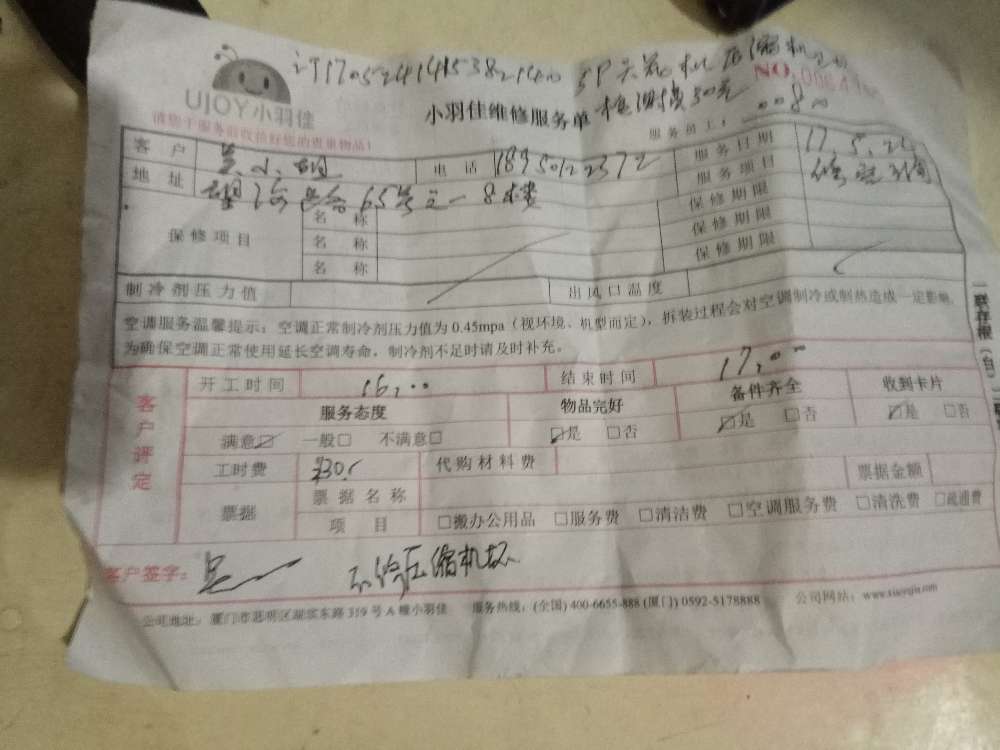 UIOY小羽佳
请您于服务前收拾好您的贵重物品!
小羽佳维修服务单 检测费30元
NO.
服务员工:
客户 吴小姐 电话 服务日期 17.5.24
地址 65号之一8楼 服务项目 修空调
保修项目 名称 保修期限
名称 保修期限
名称 保修期限
制冷剂压力值 出风口温度
空调服务温馨提示:空调正常制冷剂压力值为0.45mpa(视环境、机型而定),拆装过程会对空调制冷或制热造成一定影响,
为确保空调正常使用延长空调寿命,制冷剂不足时请及时补充。
一联存根(白)
客户评定
开工时间 16:00 结束时间 17:00
服务态度 物品完好 备件齐全 收到卡片
满意☑ 一般□ 不满意□ ☑是 □否 ☑是 □否 ☑是 □否
工时费 30 代购材料费 票据金额
票据 票据名称
项目 □搬办公用品 □服务费 □清洁费 □空调服务费 □清洗费 □疏通费
客户签字: 吴 不冷压缩机坏
公司地址:厦门市思明区湖滨东路319号A幢小羽佳 服务热线:(全国)400-6655-888(厦门)0592-5178888 公司网站:www.xiaoyujia.com